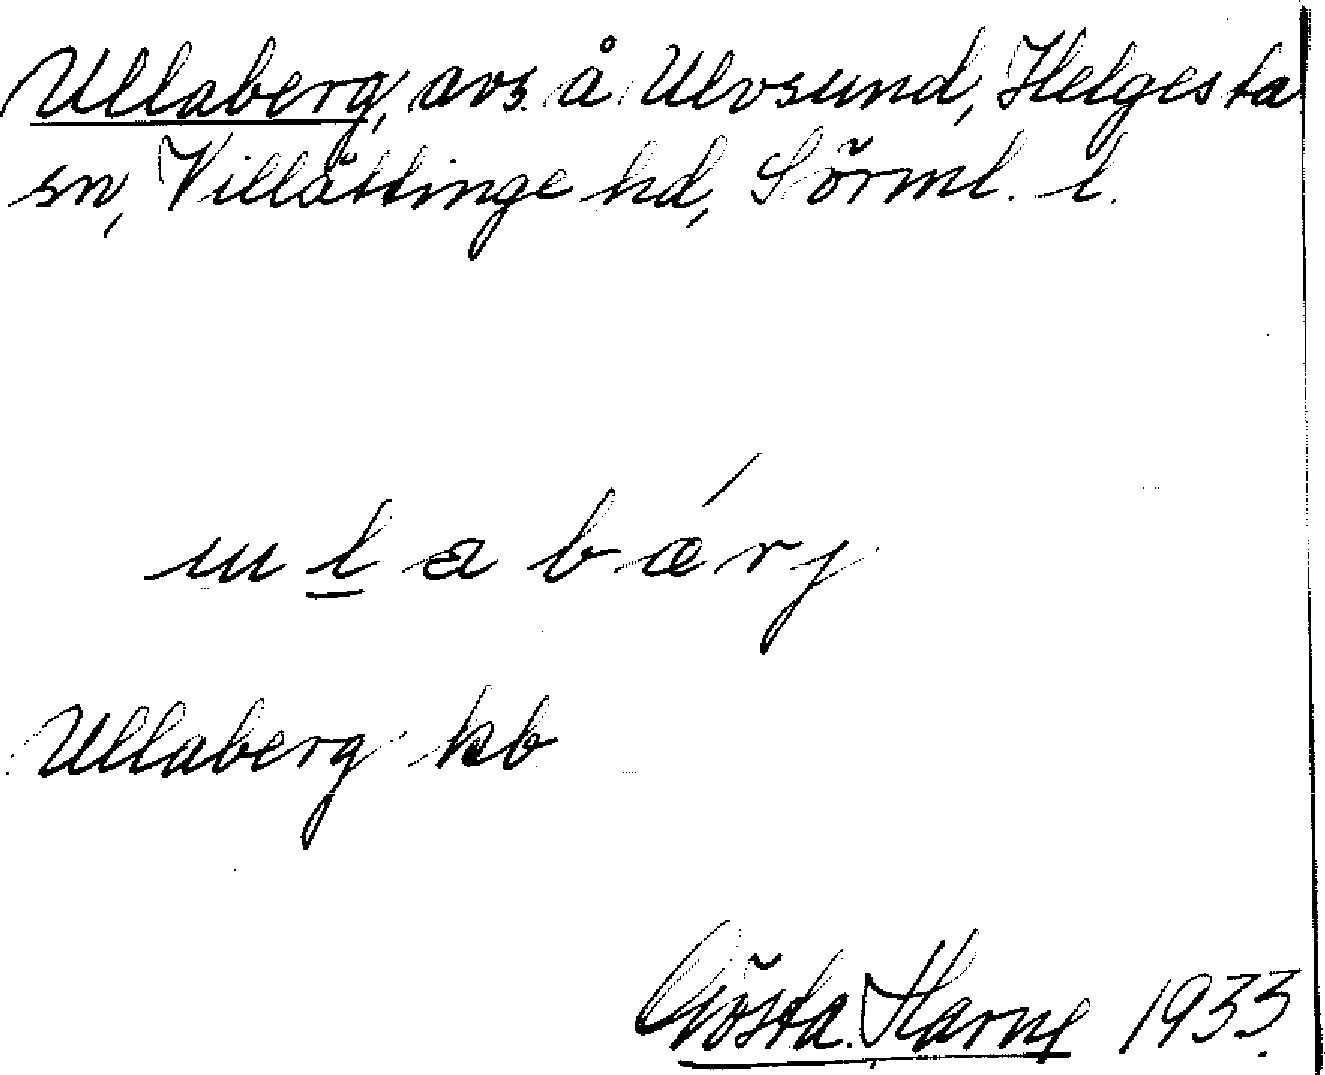 Ullaberg, avs. å Ulvsund, Helgesta
sn, Villåttinge hd, Sörml. l.
ulabærj
Ullaberg kb
Gösta Harne 1933.